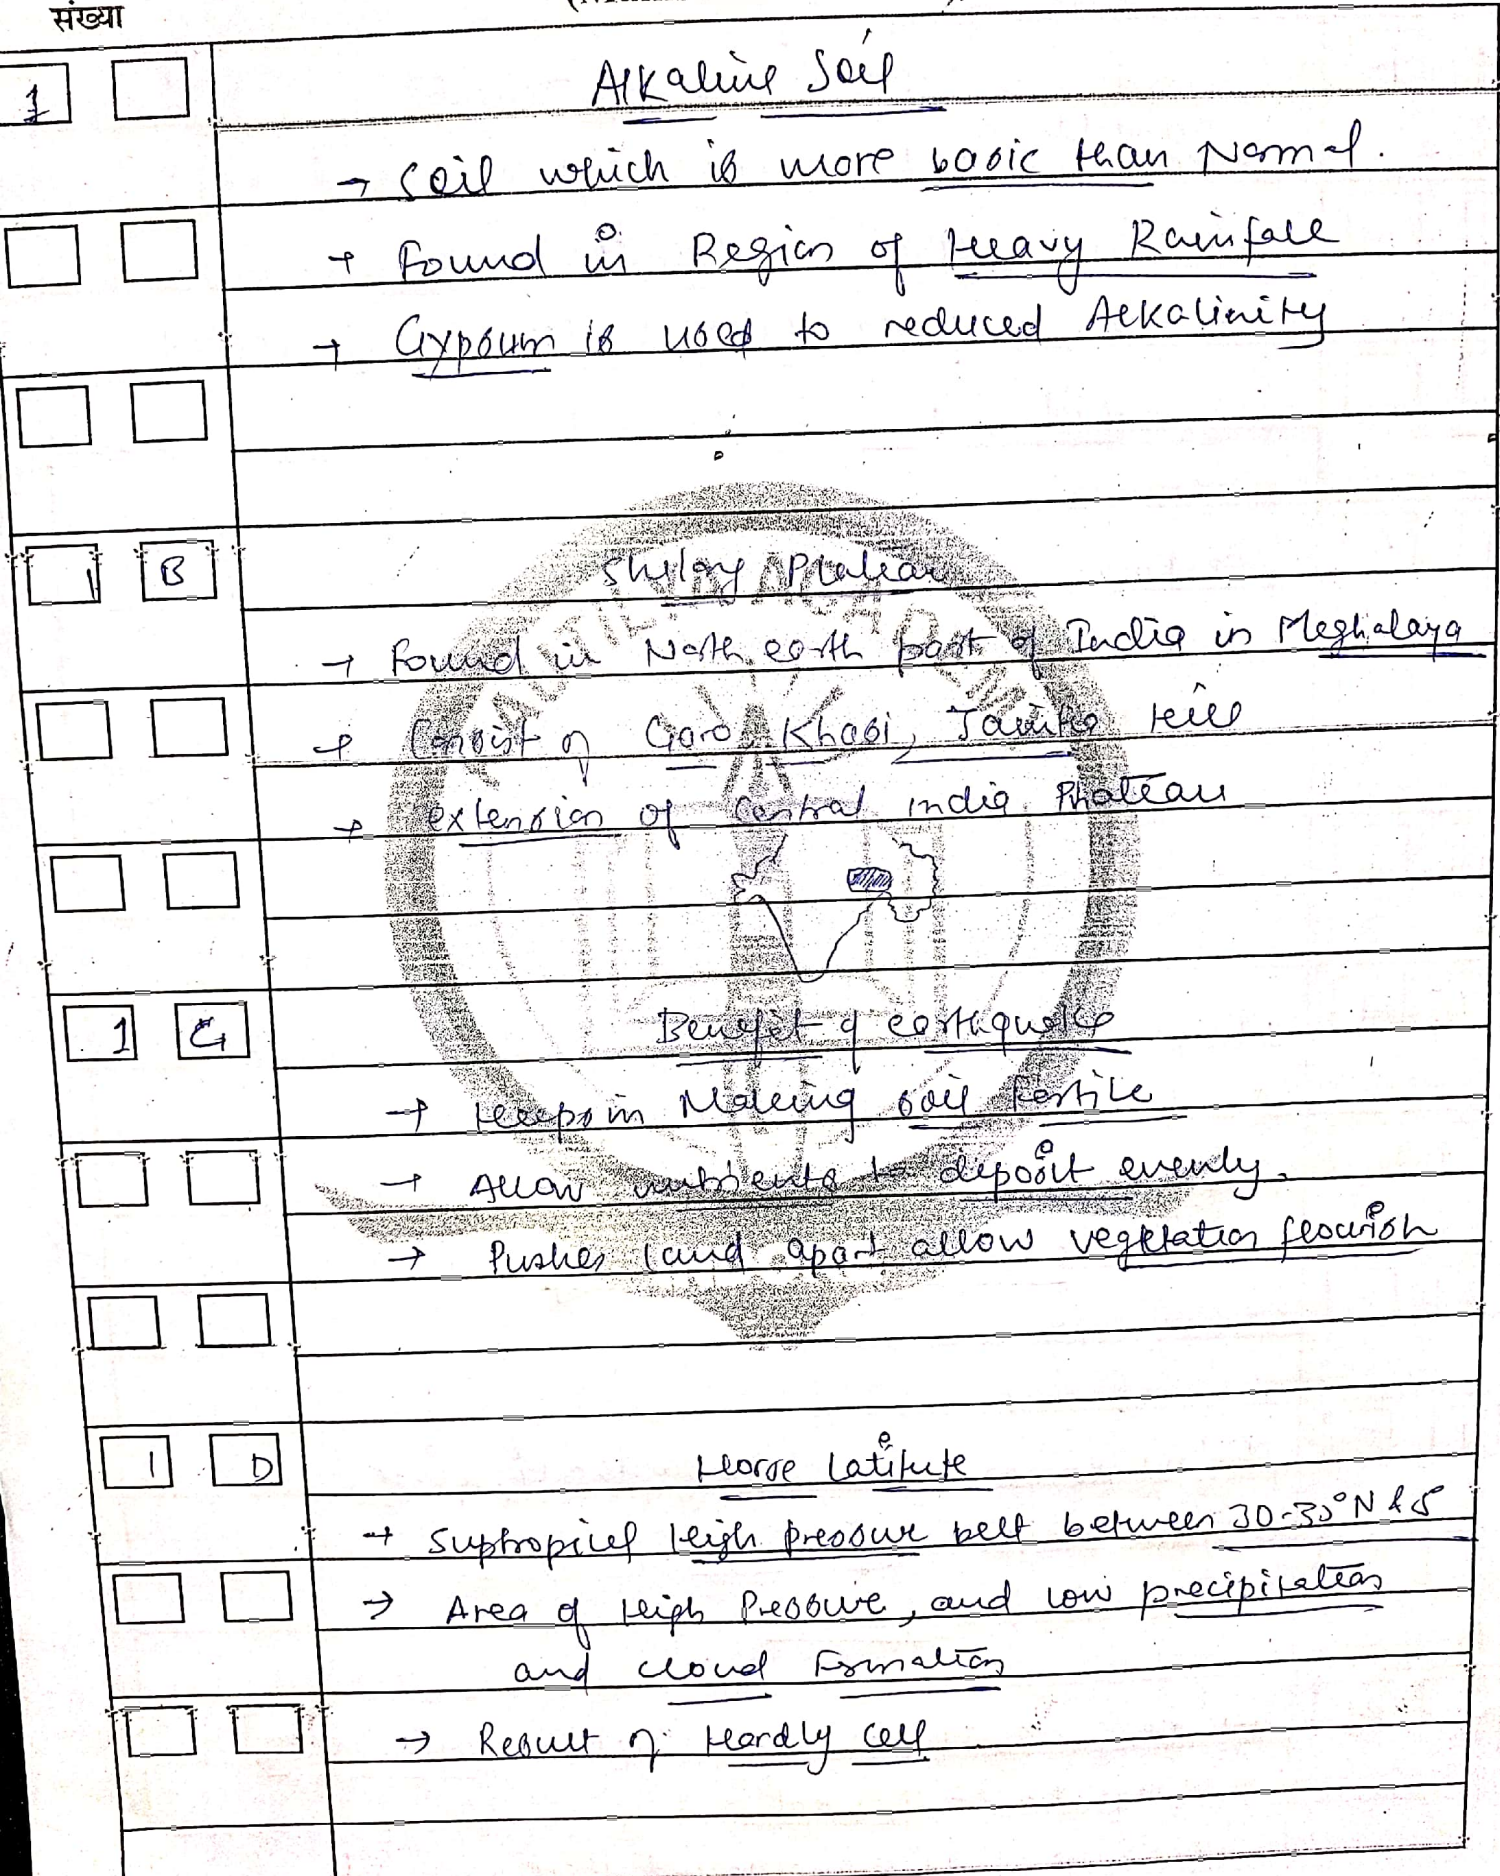 संख्या
1
Alkaline Soil
→ Soil which is more basic than Normal.
→ Found in Region of Heavy Rainfall
→ Gypsum is used to reduced Alkalinity
1 B
Shilong Plateau
→ Found in North earth part of India in Meghalaya
→ Consist of Garo, Khasi, Jaintia Hill
→ extension of Central India Phateau
1 C
Benefit of earthquake
→ Helps in Making soil Fertile
→ Allow nutrients to deposit evenly.
→ Pushes land apart allow vegetation flourish
1 D
Horse Latitute
→ Suptropical High pressure belt between 30-35°N & S
→ Area of High Pressure, and low precipitation
and cloud Formation
→ Result of Hardly cell